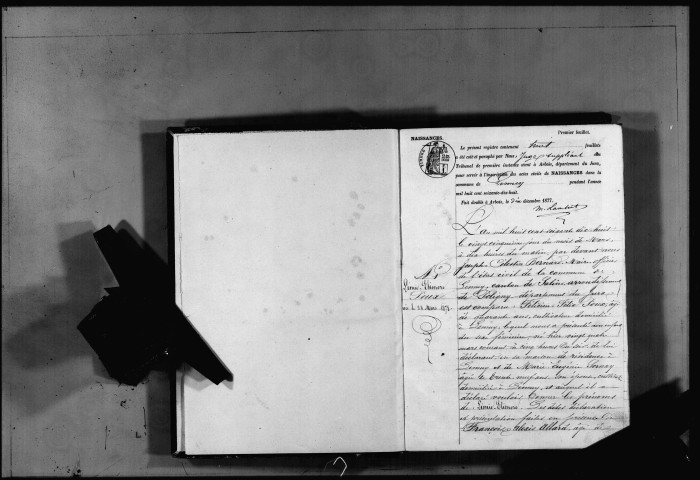 NAISSANCES.
Premier feuillet.
Le présent registre contenant huit feuillets
a été coté et paraphé par Nous, Juge suppléant du
Tribunal de première instance séant à Arbois, département du Jura,
pour servir à l'inscription des actes civils de NAISSANCES dans la
commune de pendant l'année
mil huit cent soixante-dix-huit.
Fait double à Arbois, le dix décembre 1877.
L'an mil huit cent soixante dix huit
le vingt cinquième jour du mois de Mars
à dix heures du matin, par devant nous
Joseph Célestin Bernard, Maire officier
de l'état civil de la commune de
canton de Salins arrondissement
de Poligny, département du Jura,
est comparu Félicien Félix
de quarante ans, cultivateur domicilié
à lequel nous a présenté un enfant
du sexe féminin, né hier vingt quatre
mars courant à cinq heures du soir de lui
déclarant en sa maison de résidence à
et de Marie Eugénie
âgée de trente ans son épouse
domiciliée à et auquel il a
déclaré vouloir donner les prénoms
de Les dites déclaration
et présentation faites en présence de
François Allard âgé de
N° 1
né le 24 Mars 1878